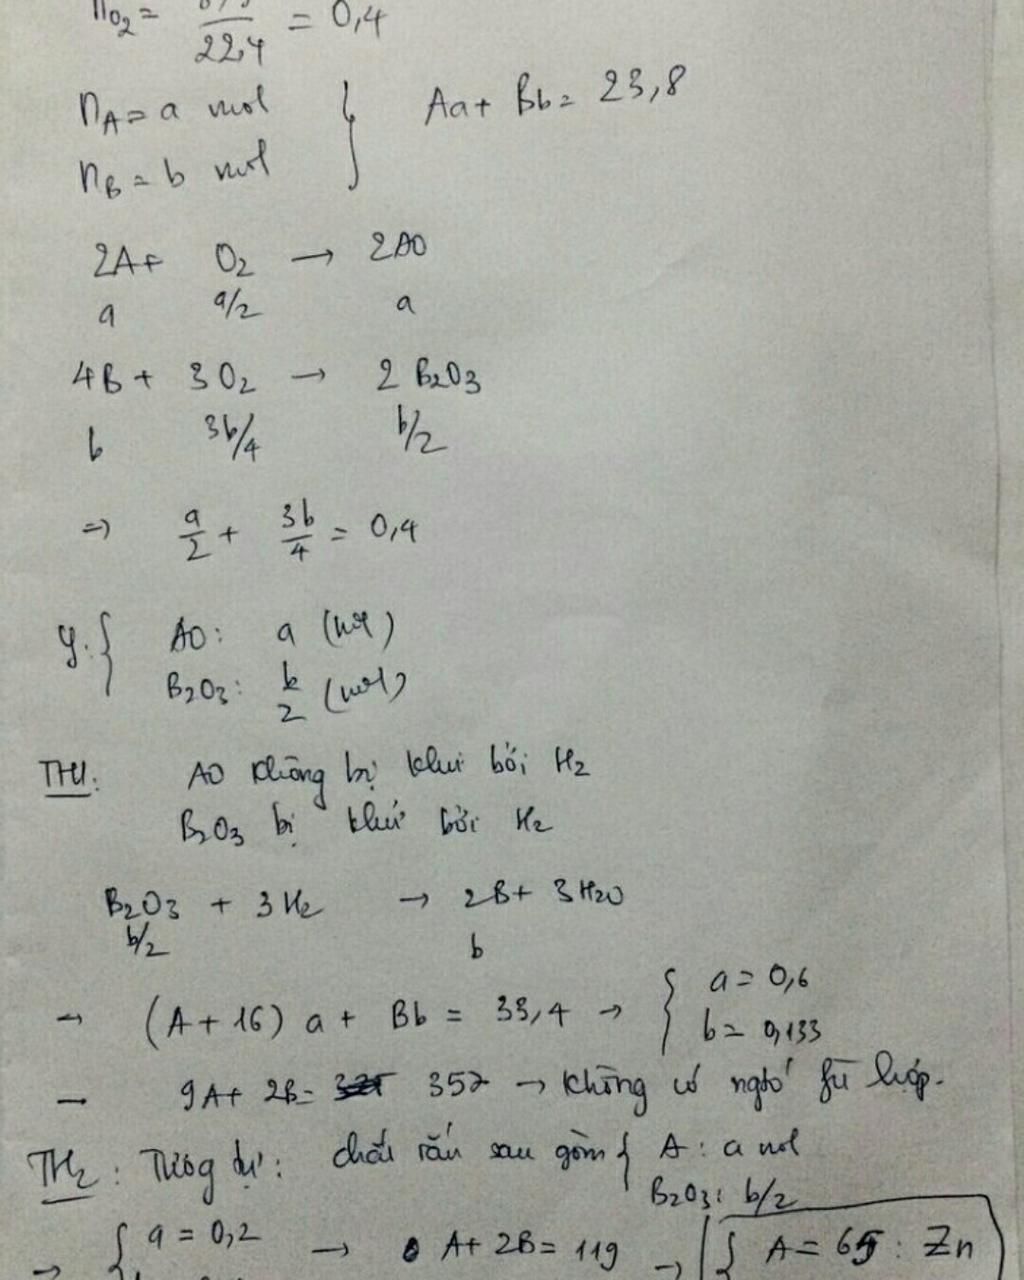 nO2 = /22,4 = 0,4
nA = a mol } Aa + Bb = 23,8
nB = b mol
2A + O2 → 2AO
a a/2 a
4B + 3O2 → 2 B2O3
b 3b/4 b/2
=> a/2 + 3b/4 = 0,4
Y: { AO: a (mol)
B2O3: b/2 (mol)
TH1: AO không bị khử bởi H2
B2O3 bị khử bởi H2
B2O3 + 3H2 → 2B + 3H2O
b/2 b
→ (A + 16) a + Bb = 33,4 → { a = 0,6
b = 0,133
→ 9A + 2B = 357 → không có ngtố phù hợp.
TH2: Tương tự: chất rắn sau gồm { A: a mol
B2O3: b/2
→ { a = 0,2 → A + 2B = 119 → { A = 65 : Zn